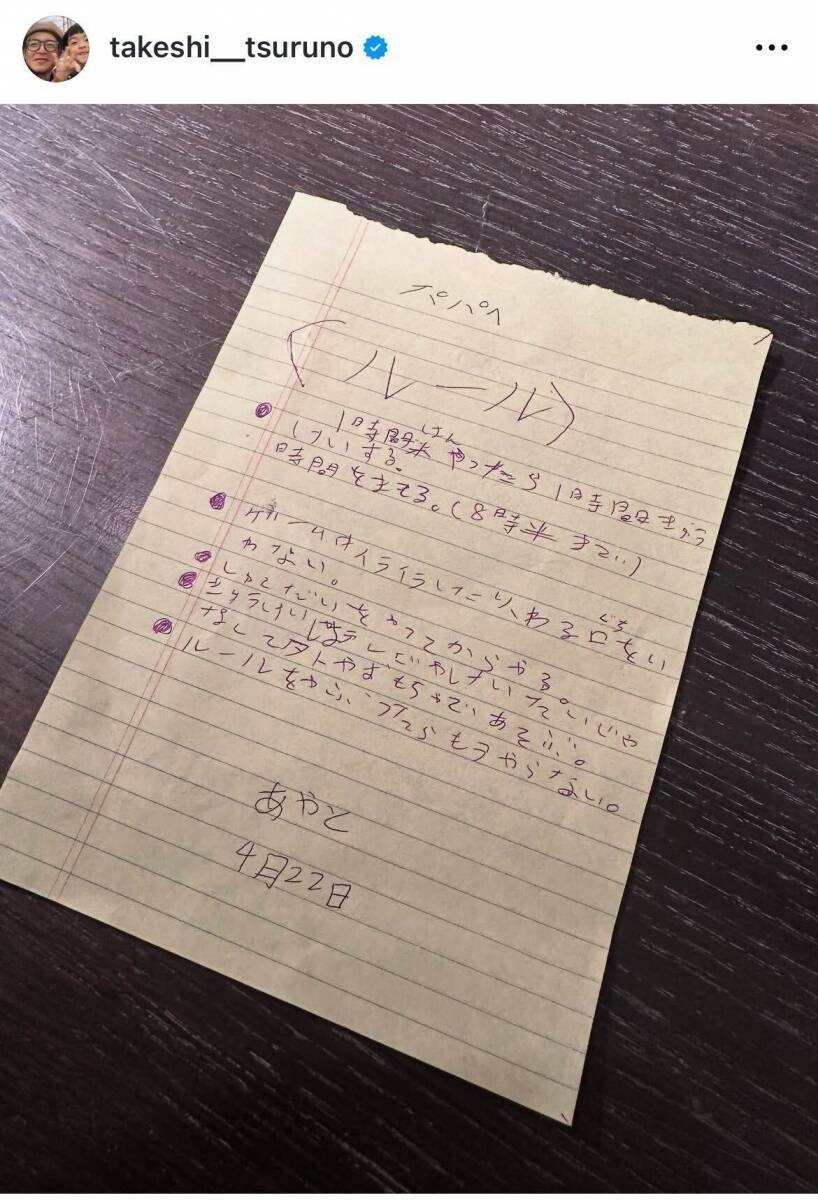 takeshi__tsuruno
パパへ
(ルール)
● 1時間半やったら1時間きゅう
はん
けいする。
時間を (8時半まで)
● ゲームはイライラしたり、わる口をい
ぐち
わない。
● しゅくだいをやってからやる。
● きゅうけいはテレビやけいたいじゃ
なくて外やおもちゃであそぶ。
● ルールをやぶったらもうやらない。
あやと
4月22日